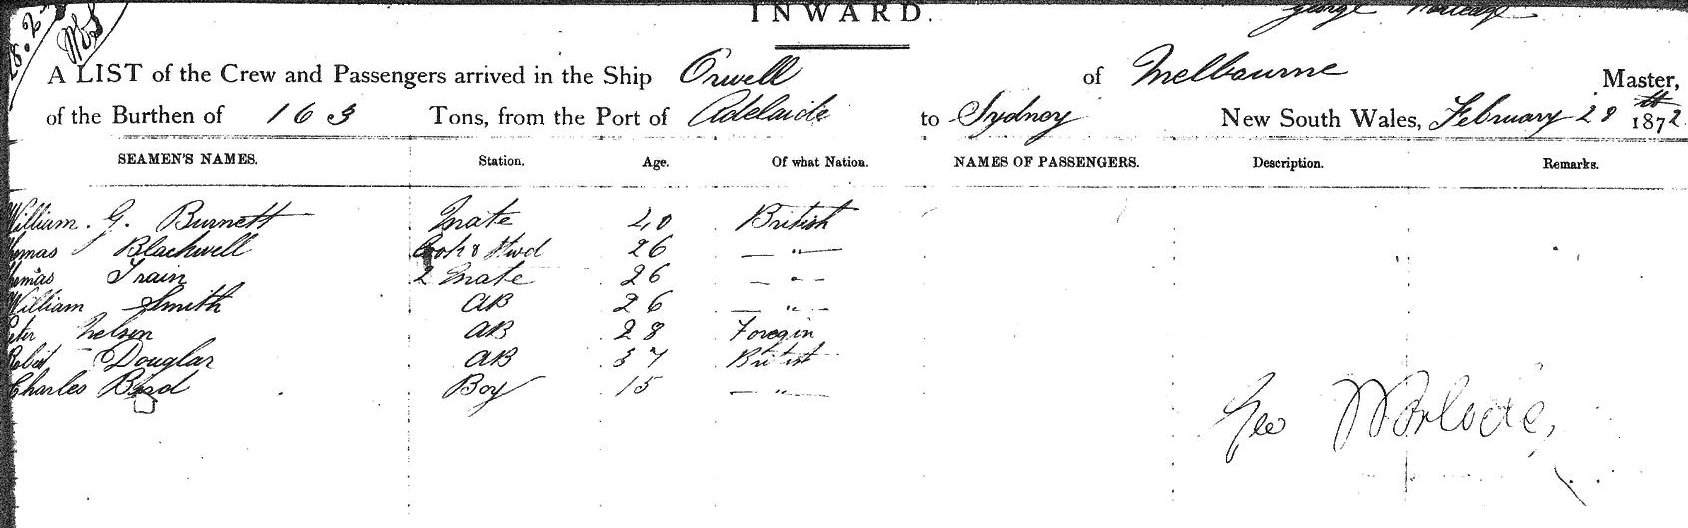 INWARD.
28.2
George
A LIST of the Crew and Passengers arrived in the Ship Orwell of Melbourne Master,
of the Burthen of 163 Tons, from the Port of Adelaide to Sydney New South Wales, February 28th 1872
SEAMEN'S NAMES. Station. Age. Of what Nation. NAMES OF PASSENGERS. Description. Remarks.
William. G. Burnett Mate 40 British
Thomas Blackwell Cook & Stwd 26 — " —
Thomas Train 2 Mate 26 — " —
William Smith AB 26 — " —
Peter Nelson AB 28 Foregin
Robert Douglas AB 37 British
Charles Bird Boy 15 — " —
Geo